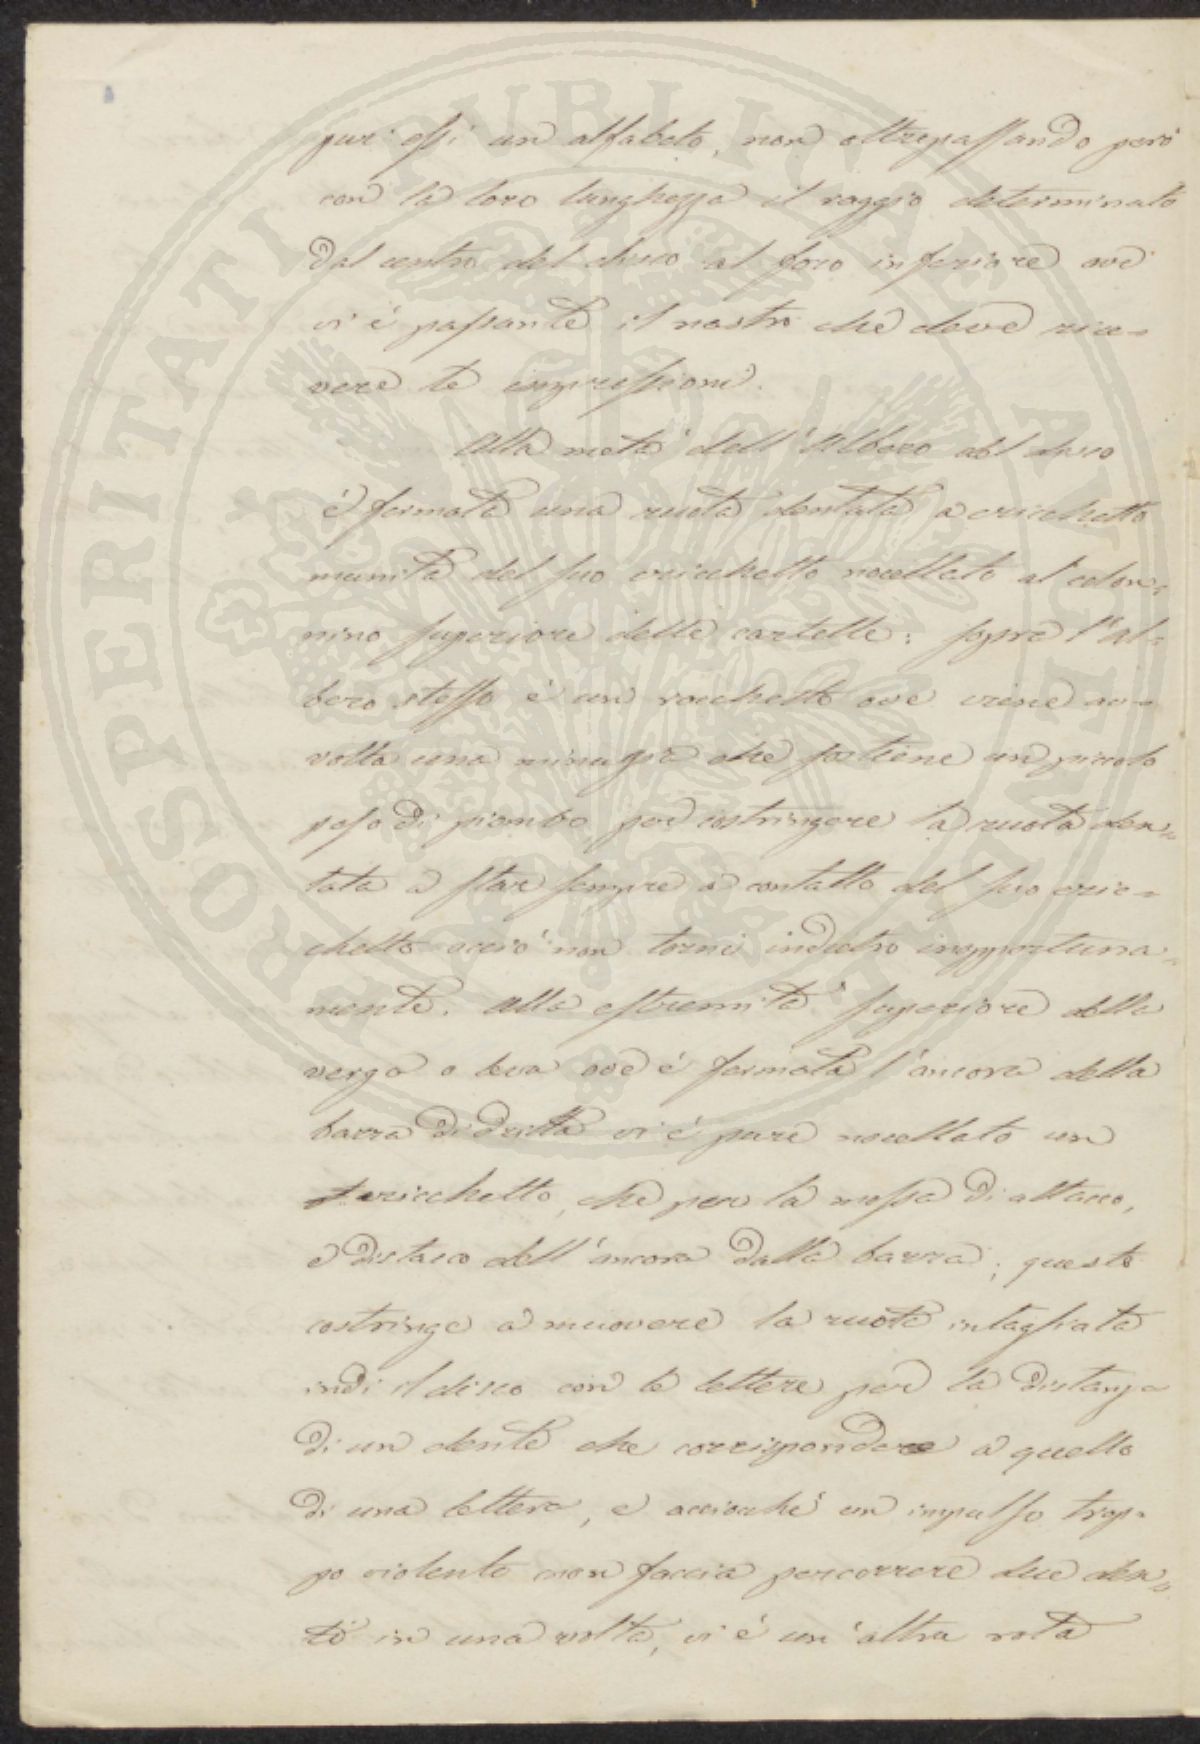 puri essi un alfabeto, non oltrepassando però
con la loro lunghezza il raggio determinato
dal centro del disco al foro inferiore ove
vi è passante il nastro che deve rice=
vere le impressioni.
Alla metà dell'albero del disco
è fermata una ruota dentata a cricchetto
munita del suo cricchetto nocellato al colon=
nino superiore delle cartelle: sopra l'al=
bero stesso è un rocchetto ove viene av=
volta una minugia che sostiene un piccolo
peso di piombo per costringere la ruota den=
tata a star sempre a contatto del suo cric=
chetto acciò non torni indietro inopportuna=
mente. Alla estremità superiore della
verga o leva ove è fermata l'ancora della
barra di dritta vi è pure nocellato un
cricchetto, che per la mossa di attacco,
e distacco dell'ancora dalla barra; questo
costringe a muovere la ruota intagliata
indi il disco con le lettere per la distanza
di un dente che corrisponde a quello
di una lettera, e acciocché un impulso trop=
po violento non faccia percorrere due den=
ti in una volta, vi è un'altra rota
PROSPERITATI PUBLICAE AUGENDAE